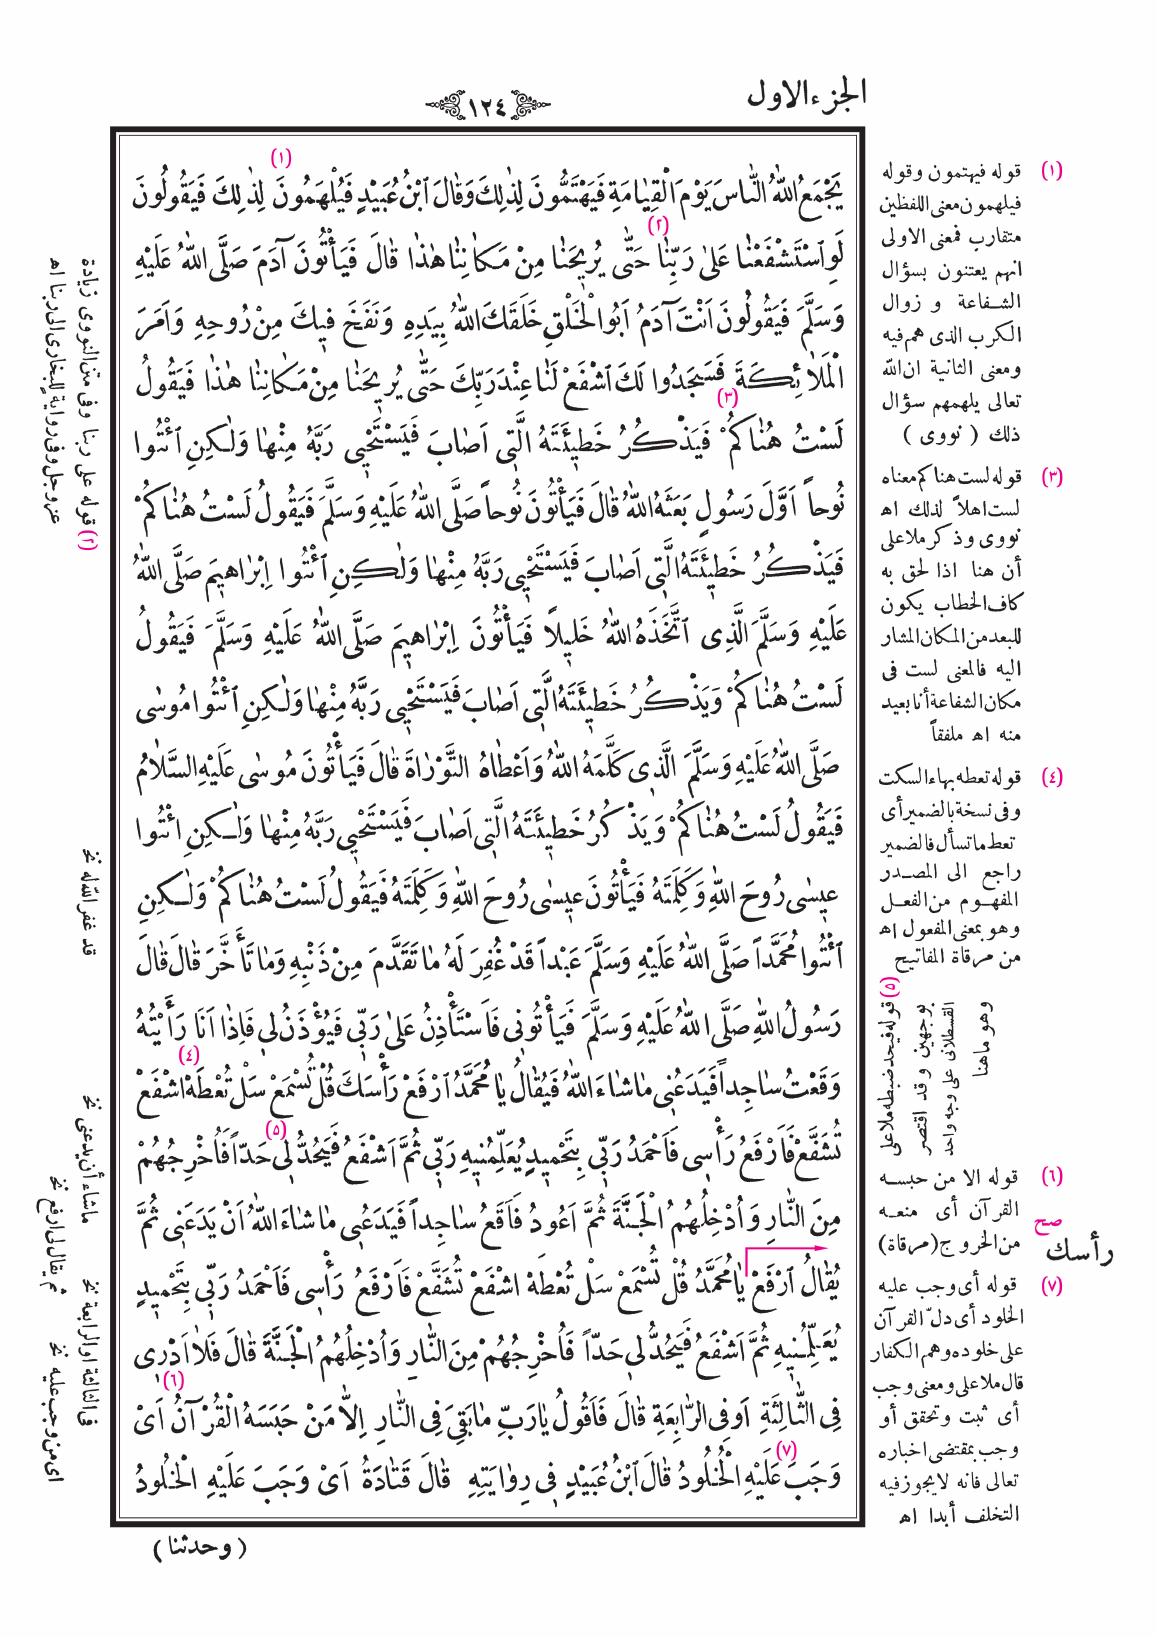 الجزء الاول
١٢٤
(١)
يَجْمَعُ اللّٰهُ النَّاسَ يَوْمَ الْقِيَامَةِ فَيَهْتَمُّونَ لِذٰلِكَ وَقَالَ ابْنُ عُبَيْدٍ فَيُلْهَمُونَ لِذٰلِكَ فَيَقُولُونَ
(٢)
لَوِ اسْتَشْفَعْنَا عَلىٰ رَبِّنَا حَتّٰى يُرِيحَنَا مِنْ مَكَانِنَا هٰذَا قَالَ فَيَأْتُونَ آدَمَ صَلَّى اللّٰهُ عَلَيْهِ
وَسَلَّمَ فَيَقُولُونَ اَنْتَ آدَمُ اَبُو الْخَلْقِ خَلَقَكَ اللّٰهُ بِيَدِهِ وَنَفَخَ فِيكَ مِنْ رُوحِهِ وَاَمَرَ
الْمَلَائِكَةَ فَسَجَدُوا لَكَ اشْفَعْ لَنَا عِنْدَ رَبِّكَ حَتّٰى يُرِيحَنَا مِنْ مَكَانِنَا هٰذَا فَيَقُولُ
(٣)
لَسْتُ هُنَاكُمْ فَيَذْكُرُ خَطِيئَتَهُ الَّتِي اَصَابَ فَيَسْتَحْيِي رَبَّهُ مِنْهَا وَلٰكِنِ ائْتُوا
نُوحاً اَوَّلَ رَسُولٍ بَعَثَهُ اللّٰهُ قَالَ فَيَأْتُونَ نُوحاً صَلَّى اللّٰهُ عَلَيْهِ وَسَلَّمَ فَيَقُولُ لَسْتُ هُنَاكُمْ
فَيَذْكُرُ خَطِيئَتَهُ الَّتِي اَصَابَ فَيَسْتَحْيِي رَبَّهُ مِنْهَا وَلٰكِنِ ائْتُوا اِبْرَاهِيمَ صَلَّى اللّٰهُ
عَلَيْهِ وَسَلَّمَ الَّذِى اتَّخَذَهُ اللّٰهُ خَلِيلاً فَيَأْتُونَ اِبْرَاهِيمَ صَلَّى اللّٰهُ عَلَيْهِ وَسَلَّمَ فَيَقُولُ
لَسْتُ هُنَاكُمْ وَيَذْكُرُ خَطِيئَتَهُ الَّتِي اَصَابَ فَيَسْتَحْيِي رَبَّهُ مِنْهَا وَلٰكِنِ ائْتُوا مُوسٰى
صَلَّى اللّٰهُ عَلَيْهِ وَسَلَّمَ الَّذِي كَلَّمَهُ اللّٰهُ وَاَعْطَاهُ التَّوْرَاةَ قَالَ فَيَأْتُونَ مُوسٰى عَلَيْهِ السَّلَامُ
فَيَقُولُ لَسْتُ هُنَاكُمْ وَيَذْكُرُ خَطِيئَتَهُ الَّتِي اَصَابَ فَيَسْتَحْيِي رَبَّهُ مِنْهَا وَلٰكِنِ ائْتُوا
عِيسٰى رُوحَ اللّٰهِ وَكَلِمَتَهُ فَيَأْتُونَ عِيسٰى رُوحَ اللّٰهِ وَكَلِمَتَهُ فَيَقُولُ لَسْتُ هُنَاكُمْ وَلٰكِنِ
ائْتُوا مُحَمَّداً صَلَّى اللّٰهُ عَلَيْهِ وَسَلَّمَ عَبْداً قَدْ غُفِرَ لَهُ مَا تَقَدَّمَ مِنْ ذَنْبِهِ وَمَا تَأَخَّرَ قَالَ قَالَ
رَسُولُ اللّٰهِ صَلَّى اللّٰهُ عَلَيْهِ وَسَلَّمَ فَيَأْتُونِى فَاَسْتَأْذِنُ عَلىٰ رَبِّي فَيُؤْذَنُ لِي فَاِذَا اَنَا رَأَيْتُهُ
(٤)
وَقَعْتُ سَاجِداً فَيَدَعُنِي مَا شَاءَ اللّٰهُ فَيُقَالُ يَا مُحَمَّدُ ارْفَعْ رَأْسَكَ قُلْ تُسْمَعْ سَلْ تُعْطَهْ اشْفَعْ
(٥)
تُشَفَّعْ فَاَرْفَعُ رَأْسِى فَاَحْمَدُ رَبِّي بِتَحْمِيدٍ يُعَلِّمُنِيهِ رَبِّي ثُمَّ اَشْفَعُ فَيَحُدُّ لِي حَدّاً فَاُخْرِجُهُمْ
مِنَ النَّارِ وَاُدْخِلُهُمُ الْجَنَّةَ ثُمَّ اَعُودُ فَاَقَعُ سَاجِداً فَيَدَعُنِي مَا شَاءَ اللّٰهُ اَنْ يَدَعَنِى ثُمَّ
يُقَالُ ارْفَعْ يَا مُحَمَّدُ قُلْ تُسْمَعْ سَلْ تُعْطَهْ اشْفَعْ تُشَفَّعْ فَاَرْفَعُ رَأْسِى فَاَحْمَدُ رَبِّي بِتَحْمِيدٍ
يُعَلِّمُنِيهِ ثُمَّ اَشْفَعُ فَيَحُدُّ لِي حَدّاً فَاُخْرِجُهُمْ مِنَ النَّارِ وَاُدْخِلُهُمُ الْجَنَّةَ قَالَ فَلَا اَدْرِى
(٦)
فِي الثَّالِثَةِ اَوْ فِى الرَّابِعَةِ قَالَ فَاَقُولُ يَارَبِّ مَا بَقِيَ فِى النَّارِ اِلاَّ مَنْ حَبَسَهُ الْقُرْآنُ اَىْ
(٧)
وَجَبَ عَلَيْهِ الْخُلُودُ قَالَ ابْنُ عُبَيْدٍ فِي رِوَايَتِهِ قَالَ قَتَادَةُ اَىْ وَجَبَ عَلَيْهِ الْخُلُودُ
(وحدثنا)
(١) قوله فيهتمون وقوله
فيلهمون معنى اللفظين
متقارب فمعنى الاولى
انهم يعتنون بسؤال
الشفاعة و زوال
الكرب الذى هم فيه
ومعنى الثانية ان اللّه
تعالى يلهمهم سؤال
ذلك (نووى)
(٣) قوله لست هناكم معناه
لست اهلاً لذلك اه
نووى وذكر ملا على
أن هنا اذا لحق به
كاف الخطاب يكون
للبعد من المكان المشار
اليه فالمعنى لست فى
مكان الشفاعة أنا بعيد
منه اه ملفقاً
(٤) قوله تعطه بهاء السكت
وفى نسخة بالضمير أى
تعط ما تسأل فالضمير
راجع الى المصدر
المفهوم من الفعل
وهو بمعنى المفعول اه
من مرقاة المفاتيح
(٥) قوله فيحد ضبطه ملا على
بوجهين وقد اقتصر
القسطلانى على وجه واحد
وهو ما هنا
(٦) قوله الا من حبسه
القرآن أى منعه
من الخروج (مرقاة)
صح
رأسك
(٧) قوله أى وجب عليه
الخلود أى دلّ القرآن
على خلوده وهم الكفار
قال ملا على ومعنى وجب
أى ثبت وتحقق أو
وجب بمقتضى اخباره
تعالى فانه لا يجوز فيه
التخلف أبدا اه
(٢) قوله على ربنا وفى متن النووى زيادة
عز وجل وفى رواية للبخارى الى ربنا اه
قد غفر اللّه له نخ
ماشاء أن يدعنى نخ
ثم يقال لى ارفع نخ
فى الثالثة او الرابعة نخ
اى من وجب عليه نخ